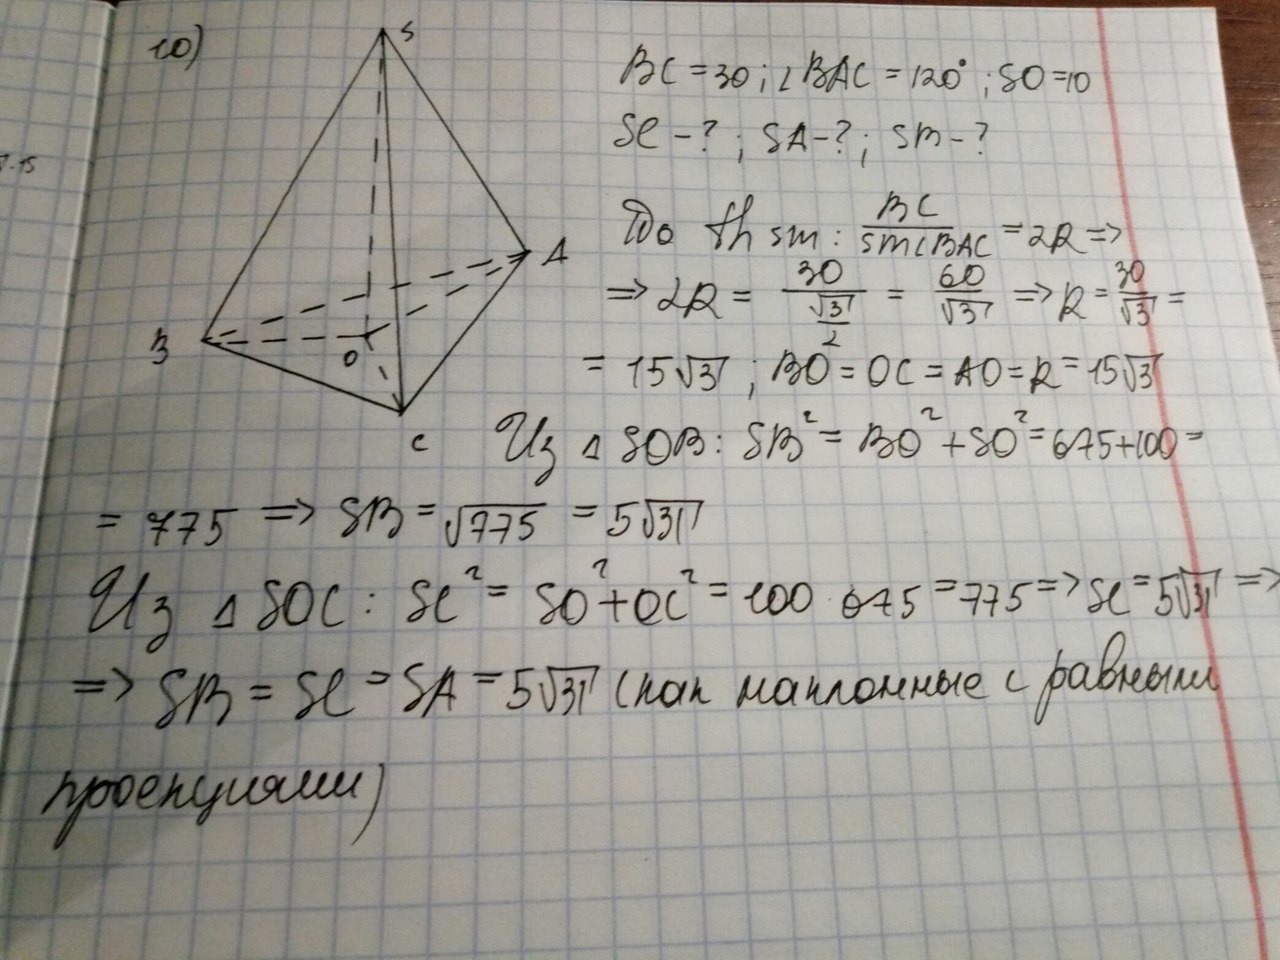 10)
S
A
B
O
C
BC = 30 ; ∠BAC = 120° ; SO = 10
SC - ? ; SA - ? ; SB - ?
По th sin : BC / sin∠BAC = 2R =>
=> 2R = 30 / (√3/2) = 60/√3 => R = 30/√3 =
= 15√3 ; BO = OC = AO = R = 15√3
Из △ SOB : SB² = BO² + SO² = 675 + 100 =
= 775 => SB = √775 = 5√31
Из △ SOC : SC² = SO² + OC² = 100 675 = 775 => SC = 5√31 =>
=> SB = SC = SA = 5√31 (как наклонные с равными
проекциями)